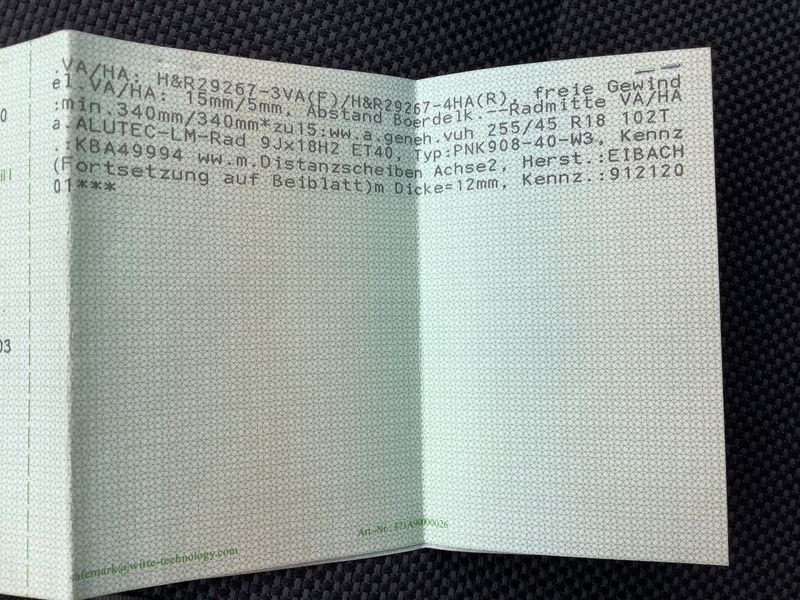 .VA/HA: H&R29267-3VA(F)/H&R29267-4HA(R), freie Gewind
el.VA/HA: 15mm/5mm, Abstand Boerdelk.--Radmitte VA/HA
:min.340mm/340mm*zu15:ww.a.geneh.vuh 255/45 R18 102T
a.ALUTEC-LM-Rad 9Jx18H2 ET40, Typ:PNK908-40-W3, Kennz
.:KBA49994 ww.m.Distanzscheiben Achse2, Herst.:EIBACH
(Fortsetzung auf Beiblatt)m Dicke=12mm, Kennz.:912120
01***
0
03
Art.-Nr.:
safemark@witte-technology.com